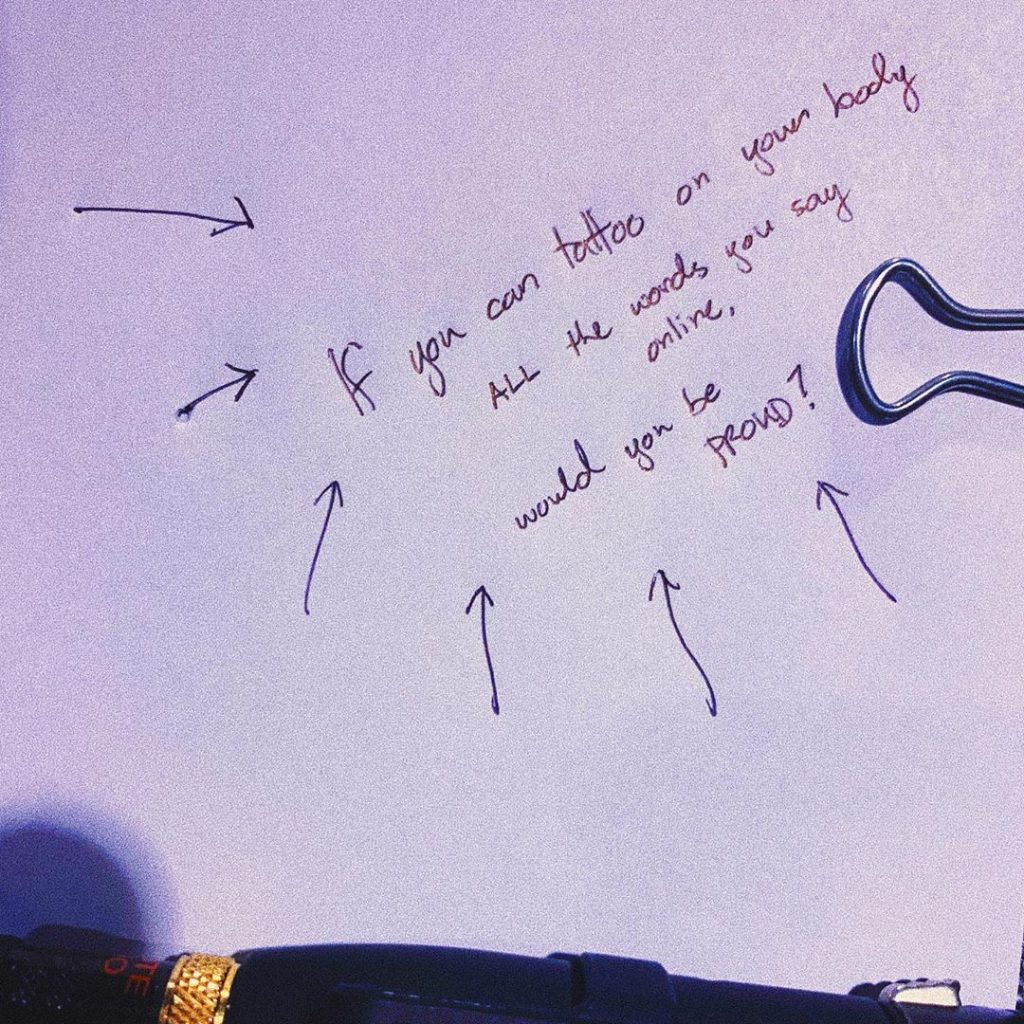 If you can tattoo on your body
ALL the words you say
online,
would you be
PROUD?